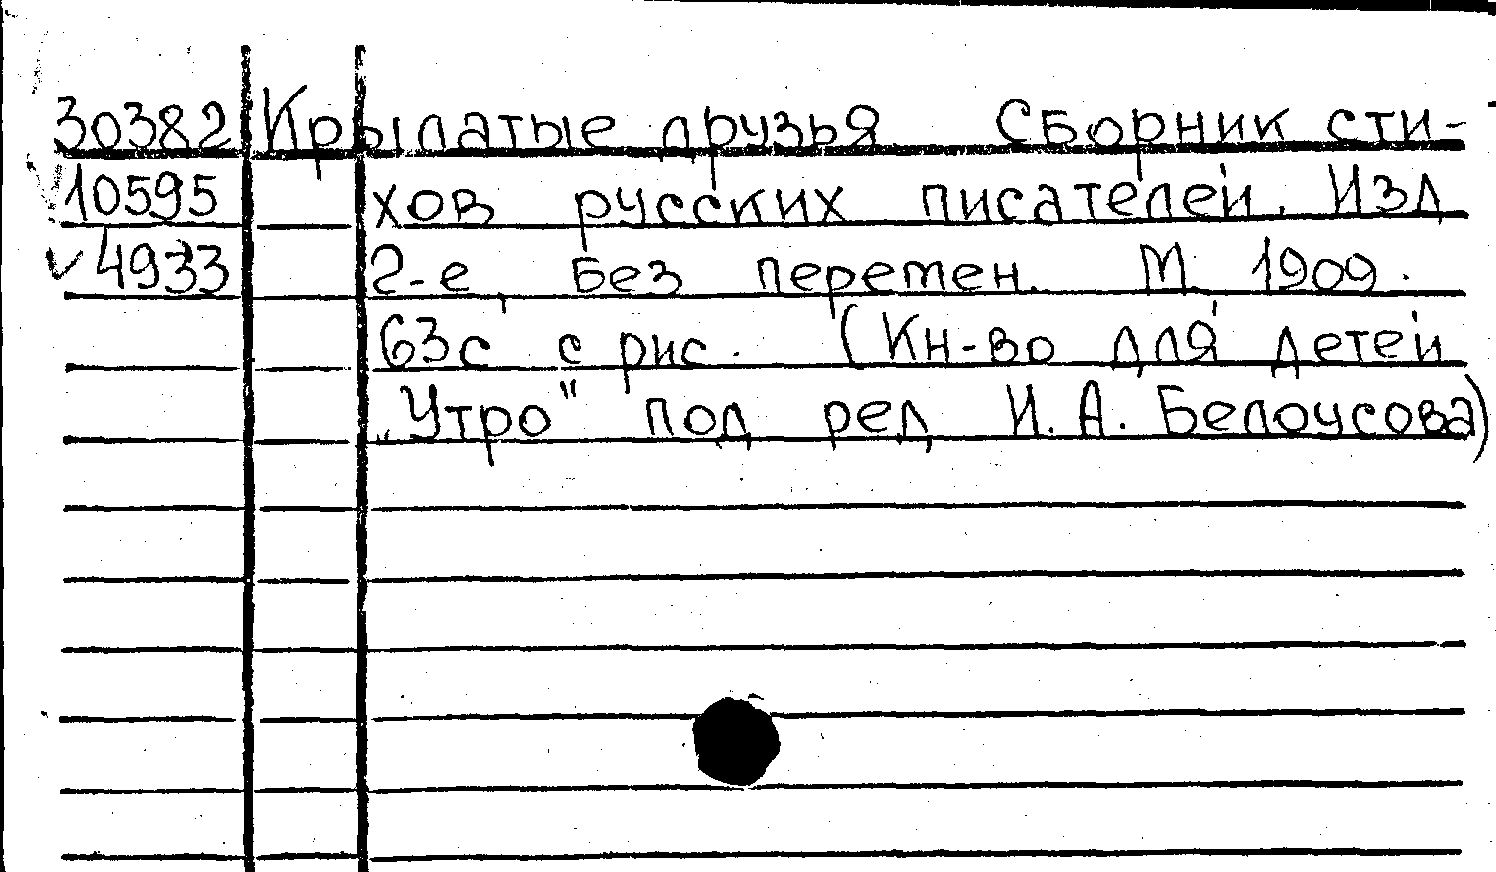 30382 Крылатые друзья Сборник сти-
10595 хов русских писателей. Изд
✓ 4933 2-е, без перемен. М. 1909.
63с с рис. (Кн-во для детей
„Утро" под ред И. А. Белоусова)